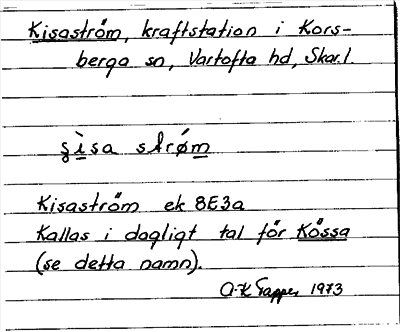 Kisaström, kraftstation i Kors-
berga sn, Vartofta hd, Skar.l.
strøm
Kisaström ek 8E3a
Kallas i dagligt tal för Kössa
(se detta namn).
A-K Tapper 1973